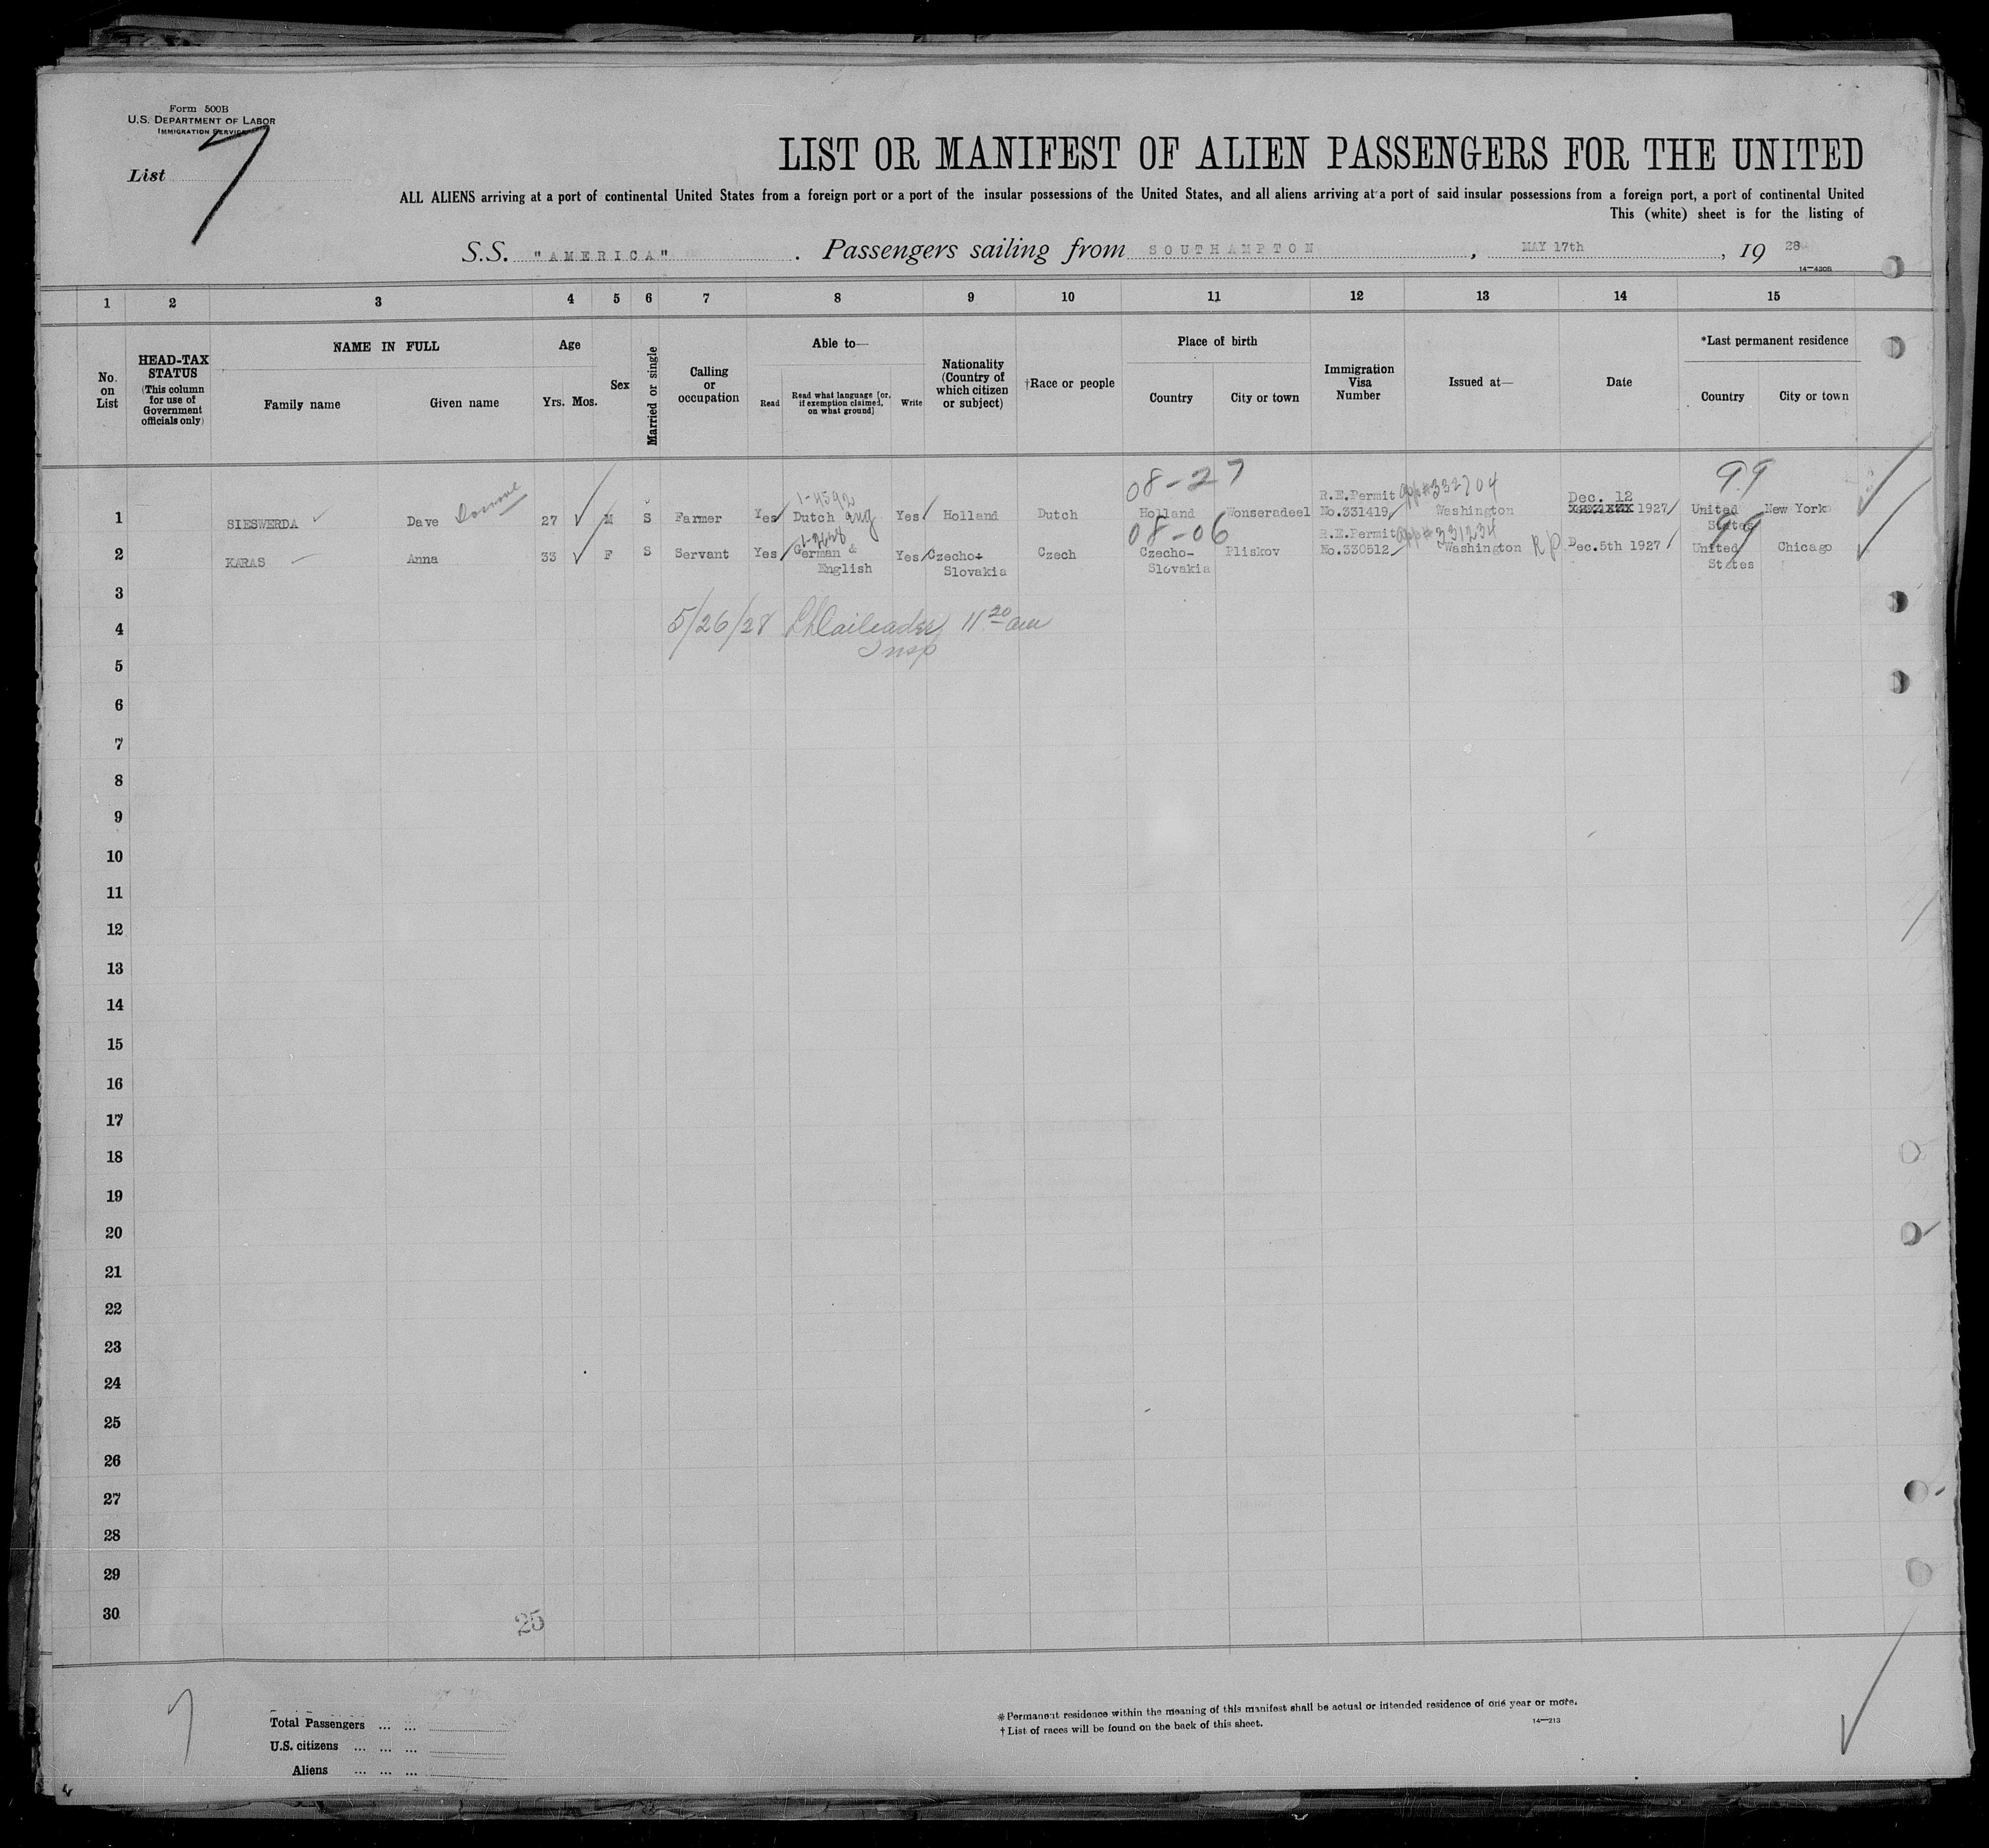 Form 500B
U.S. DEPARTMENT OF LABOR
IMMIGRATION SERVICE
List 7
LIST OR MANIFEST OF ALIEN PASSENGERS FOR THE UNITED
ALL ALIENS arriving at a port of continental United States from a foreign port or a port of the insular possessions of the United States, and all aliens arriving at a port of said insular possessions from a foreign port, a port of continental United
This (white) sheet is for the listing of
S.S. "AMERICA" . Passengers sailing from SOUTHAMPTON , MAY 17th , 19 28
14—430B
1 2 3 4 5 6 7 8 9 10 11 12 13 14 15
No. on List
HEAD-TAX STATUS (This column for use of Government officials only)
NAME IN FULL
Family name Given name
Age
Yrs. Mos.
Sex
Married or single
Calling or occupation
Able to—
Read Read what language [or, if exemption claimed, on what ground] Write
Nationality (Country of which citizen or subject)
†Race or people
Place of birth
Country City or town
Immigration Visa Number
Issued at—
Date
*Last permanent residence
Country City or town
1-4592 08-27 99
R.E.Permit app# 332704 Dec. 12
1 SIESWERDA Dave 27 M S Farmer Yes Dutch Yes Holland Dutch Holland Wonseradeel No.331419 Washington 1927 United States New York
08-06 R.E.Permit app# 331234 99
2 KARAS Anna 33 F S Servant Yes German & English Yes Czecho-Slovakia Czech Czecho-Slovakia Pliskov No.330512 Washington RP Dec.5th 1927 United States Chicago
3
5/26/28 11 20 am
4
Insp
5
6
7
8
9
10
11
12
13
14
15
16
17
18
19
20
21
22
23
24
25
26
27
28
29
30
25
7
Total Passengers ... ...
U.S. citizens ... ... ...
Aliens ... ... ...
* Permanent residence within the meaning of this manifest shall be actual or intended residence of one year or more.
† List of races will be found on the back of this sheet.
14—213